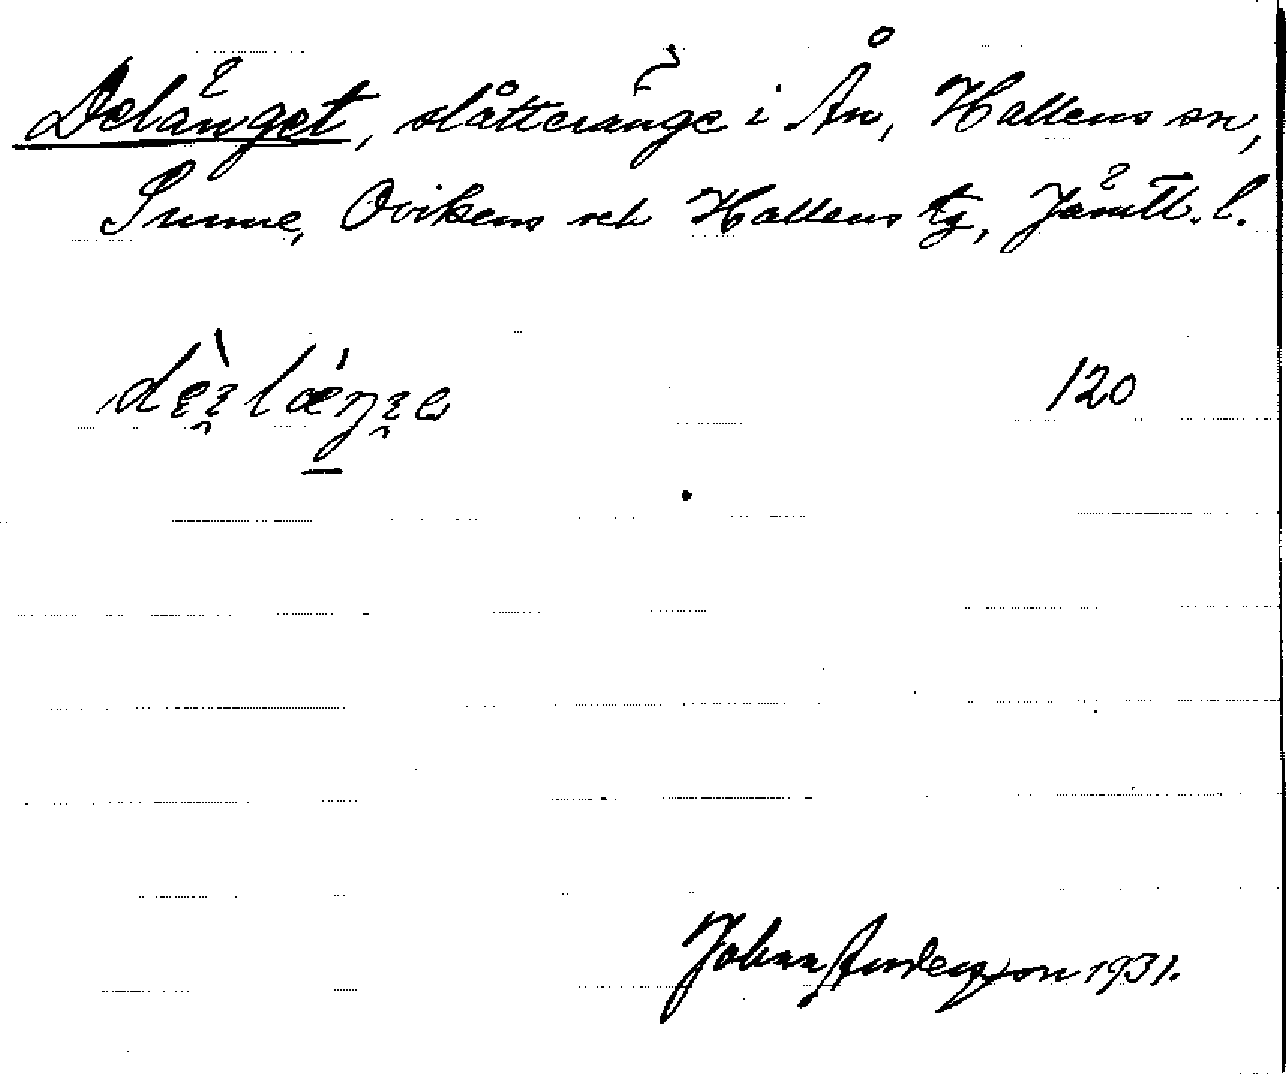 Delänget, slåtteränge i Ån, Hallens sn,
Sunne, Ovikens och Hallens tg, Jämtl. l.
120
Johan Anderson 1931.